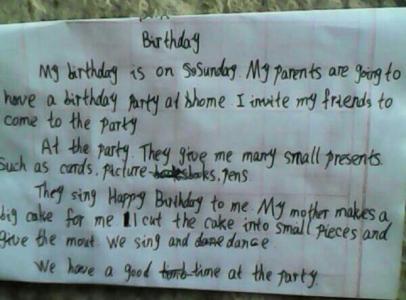 Birthday
My birthday is on Sunday. My parents are going to
have a birthday party at home. I invite my friends to
come to the party
At the party. They give me many small presents.
such as cards, picture books, pens
They sing Happy Birthday to me. My mother makes a
big cake for me I cut the cake into small pieces and
give the mout. We sing and dance.
We have a good time at the party.